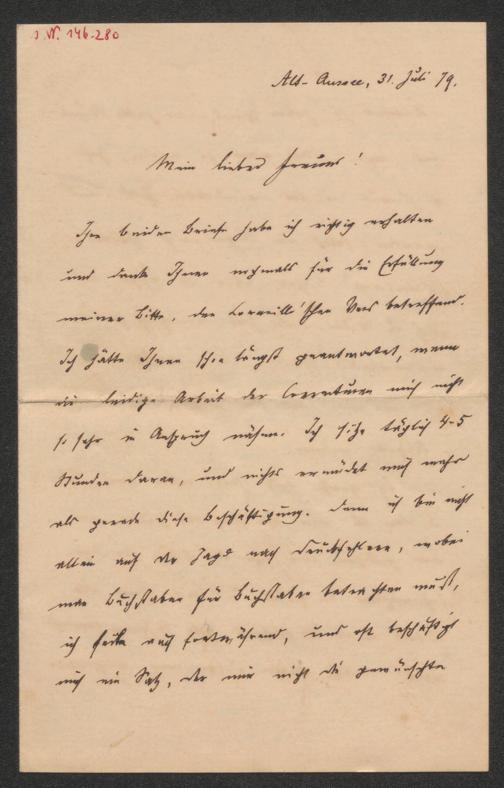 J.N. 146.280
Alt-Aussee, 31. Juli 79.
Mein lieber Freund!
Ihre beiden Briefe habe ich richtig erhalten
und danke Ihnen nochmals für die Erfüllung
meiner Bitte, den Corneill'schen Vers betreffend.
Ich hätte Ihnen schon längst geantwortet, wenn
die leidige Arbeit der Correcturen mich nicht
so sehr in Anspruch nähme. Ich sitze täglich 4-5
Stunden daran, und nichts ermüdet mich mehr
als gerade diese Beschäftigung. Denn ich bin nicht
allein auf der Jagd nach Druckfehlern, wobei
man Buchstaben für Buchstaben betrachten muß,
ich feile auch fortwährend, und oft beschäftigt
mich ein Satz, der mir nicht die gewünschte